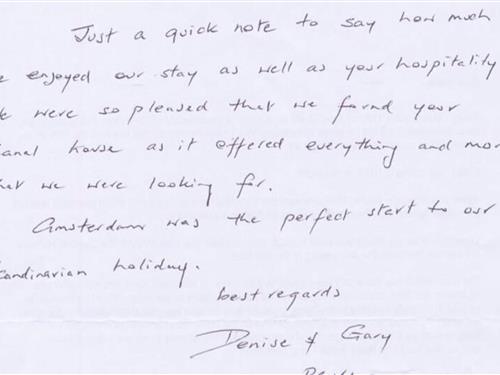 Just a quick note to say how much
e enjoyed our stay as well as your hospitality
e were so pleased that we found your
anal house as it offered everything and mor
hat we were looking for.
Amsterdam was the perfect start to our
candinavian holiday.
best regards
Denise & Gary